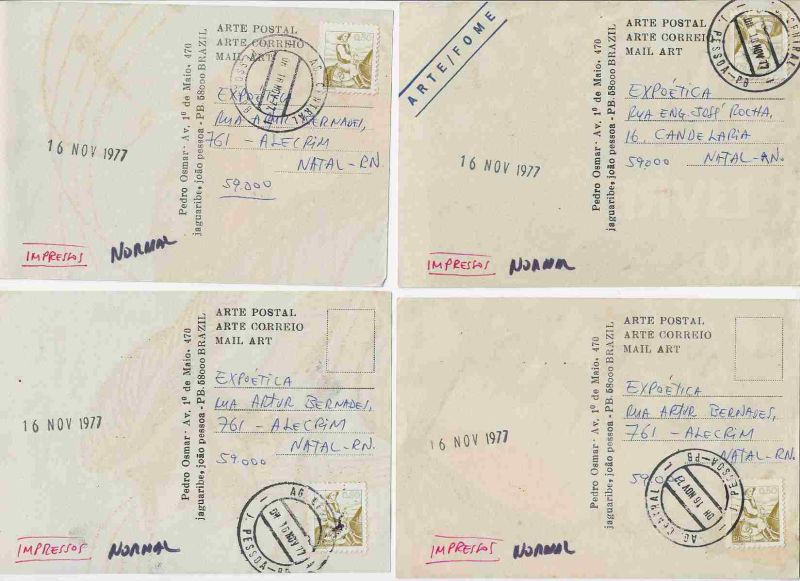 ARTE POSTAL
ARTE CORREIO
MAIL ART
EXPOÉTICA
RUA ARTUR BERNADES,
761 - ALECRIM
NATAL-RN
59.000
Pedro Osmar· Av. 1º de Maio, 470
jaguaribe, joão pessoa - PB. 58000 BRAZIL
16 NOV 1977
IMPRESSOS
NORMAL
AG CENTRAL
16 NOV 77
0,50
ARTE/FOME
ARTE POSTAL
ARTE CORREIO
MAIL ART
EXPOÉTICA
RUA ENG. JOSÉ ROCHA,
16, CANDELARIA
59000 NATAL-RN.
Pedro Osmar· Av. 1º de Maio, 470
jaguaribe, joão pessoa - PB. 58000 BRAZIL
16 NOV 1977
IMPRESSOS
NORMAL
J. PESSOA-PB
16 NOV 77
ARTE POSTAL
ARTE CORREIO
MAIL ART
EXPOÉTICA
RUA ARTUR BERNADES,
761 - ALECRIM
NATAL-RN.
59.000
Pedro Osmar· Av. 1º de Maio, 470
jaguaribe, joão pessoa - PB. 58000 BRAZIL
16 NOV 1977
IMPRESSOS
NORMAL
J. PESSOA-PB
16 NOV 77
0,50
ARTE POSTAL
ARTE CORREIO
MAIL ART
EXPOÉTICA
RUA ARTUR BERNADES,
761 - ALECRIM
NATAL-RN.
Pedro Osmar· Av. 1º de Maio, 470
jaguaribe, joão pessoa - PB. 58000 BRAZIL
16 NOV 1977
IMPRESSOS
NORMAL
AG CENTRAL
J. PESSOA-PB
16 NOV 77
0,50